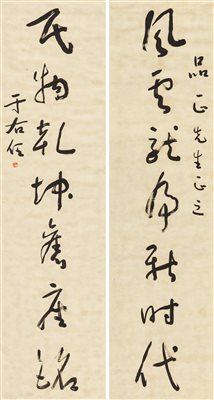 風雲龍虎新時代
品正先生正之
民物乾坤舊座銘
于右任